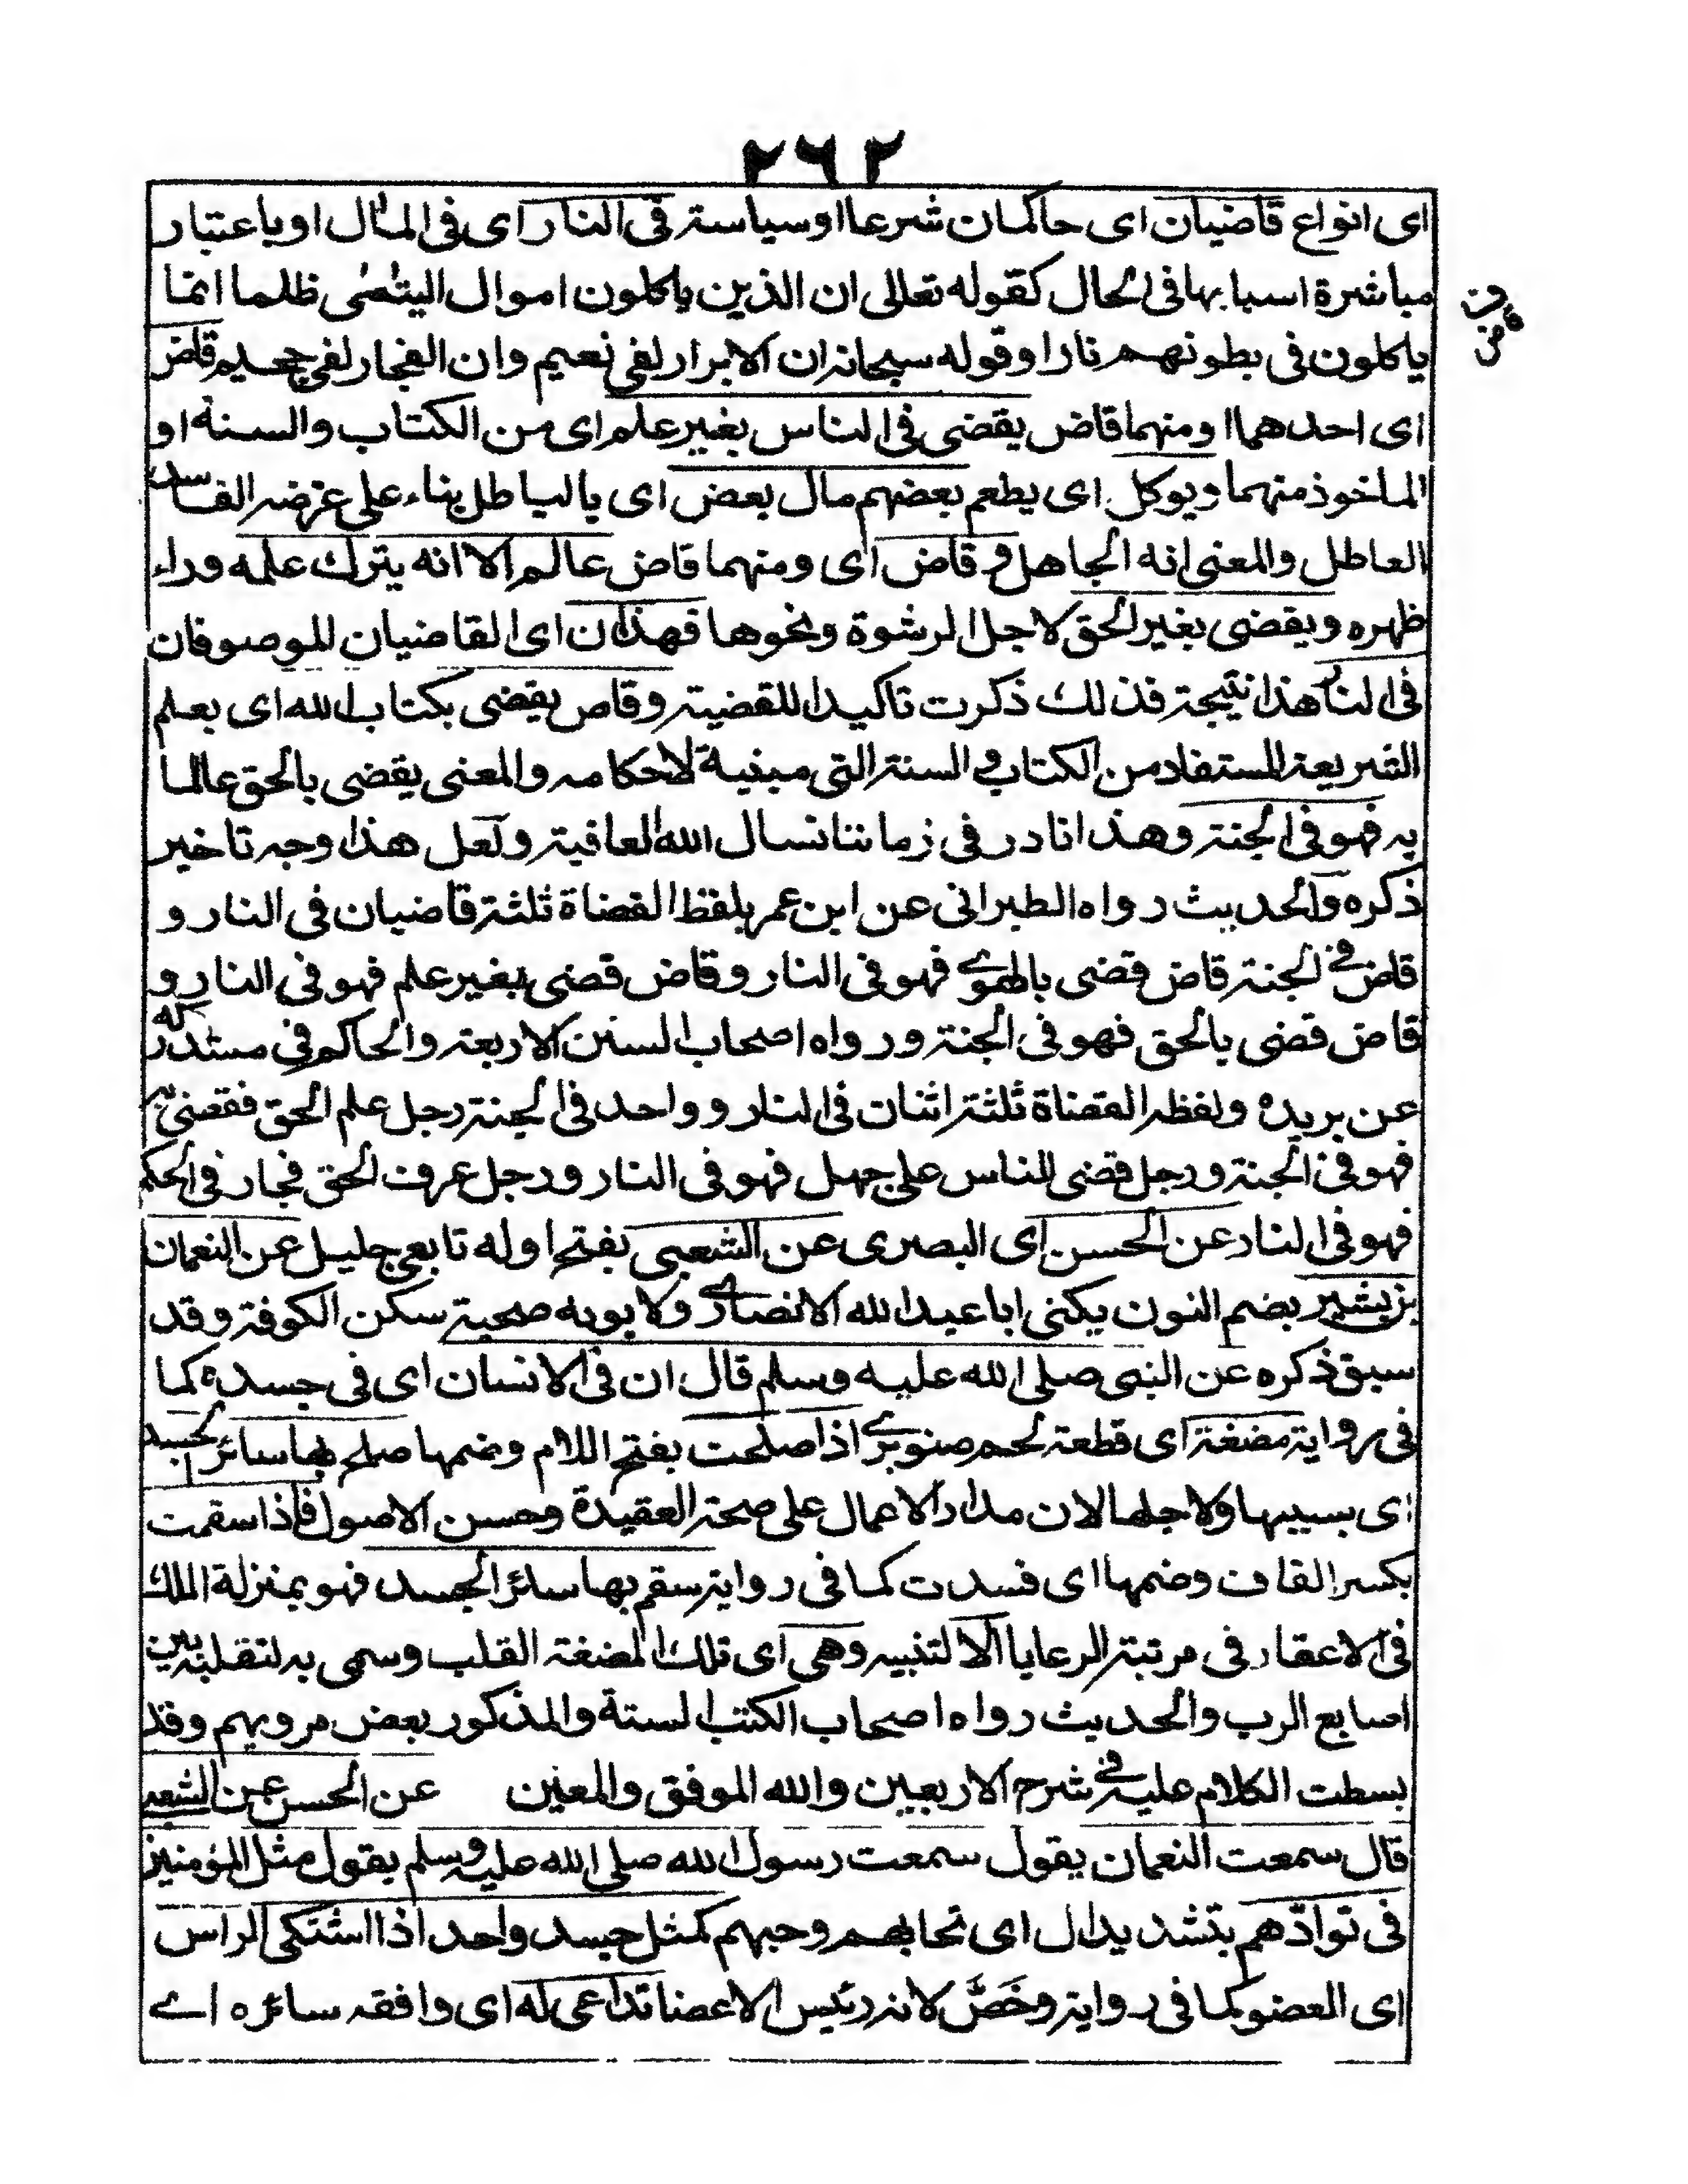 ٢٦٢
اى انواع قاضيان اى حاكمان شرعا اوسياسة فى النار اى فى المآل او باعتبار
مباشرة اسبابها فى الحال كقوله تعالى ان الذين ياكلون اموال اليتٰمٰى ظلما انما
ياكلون فى بطونهم نارا وقوله سبحانه ان الابرار لفى نعيم وان الفجار لفى جحيم قاض
اى احدهما ومنهما قاض يقضى فى الناس بغير علم اى من الكتاب والسنة او
الماخوذ منهما ويوكل اى يطعم بعضهم مال بعض اى بالباطل بناء على غرضه الفاسد
العاطل والمعنى انه الجاهل و قاض اى ومنهما قاض عالم الا انه يترك علمه وراء
ظهره ويقضى بغير الحق لاجل الرشوة ونحوها فهذان اى القاضيان الموصوفان
فى النار هذا نتيجة فذلك ذكرت تاكيدا للقضية وقاض يقضى بكتاب الله اى بعلم
الشريعة المستفاد من الكتاب و السنة التى مبنية لاحكامه والمعنى يقضى بالحق عالما
به فهو فى الجنة وهذا نادر فى زماننا نسال الله العافية ولعل هذا وجه تاخير
ذكره والحديث رواه الطبرانى عن ابن عمر بلفظ القضاة ثلثة قاضيان فى النار و
قاض فى الجنة قاض قضى بالهوى فهو فى النار وقاض قضى بغير علم فهو فى النار و
قاض قضى بالحق فهو فى الجنة ورواه اصحاب السنن الاربعة والحاكم فى مستدركه
عن بريده ولفظه القضاة ثلثة اثنان فى النار وواحد فى الجنة رجل علم الحق فقضى به
فهو فى الجنة ورجل قضى للناس على جهل فهو فى النار ورجل عرف الحق فجار فى الحكم
فهو فى النار عن الحسن اى البصرى عن الشعبى بفتح اوله تابعى جليل عن النعمان
بن بشير بضم النون يكنى ابا عبد الله الانصارى ولابويه صحبة سكن الكوفة وقد
سبق ذكره عن النبى صلى الله عليه وسلم قال ان فى الانسان اى فى جسده كما
فى رواية مضغة اى قطعة لحم صنوبرى اذا صلحت بفتح اللام وضمها صلح بها سائر الجسد
اى بسببها ولاجلها لان مدار الاعمال على صحة العقيدة وحسن الاصول فاذا سقمت
بكسر القاف وضمها اى فسدت كما فى رواية سقم بها سائر الجسد فهو بمنزلة الملك
فى الاعقار فى مرتبة الرعايا الا لتنبيه وهى اى تلك المضغة القلب وسمى به لتقلبه بين
اصابع الرب والحديث رواه اصحاب الكتب الستة والمذكور بعض مرويهم وقد
بسطت الكلام عليه فى شرح الاربعين والله الموفق والمعين عن الحسن عن الشعبى
قال سمعت النعمان يقول سمعت رسول الله صلى الله عليه وسلم يقول مثل المؤمنين
فى توادّهم بتشديد دال اى تحابهم وحبهم كمثل جسد واحد اذا اشتكى الراس
اى العضو كما فى رواية وخَصَّ لانه رئيس الاعضا تداعى له اى وافقه سائره اے